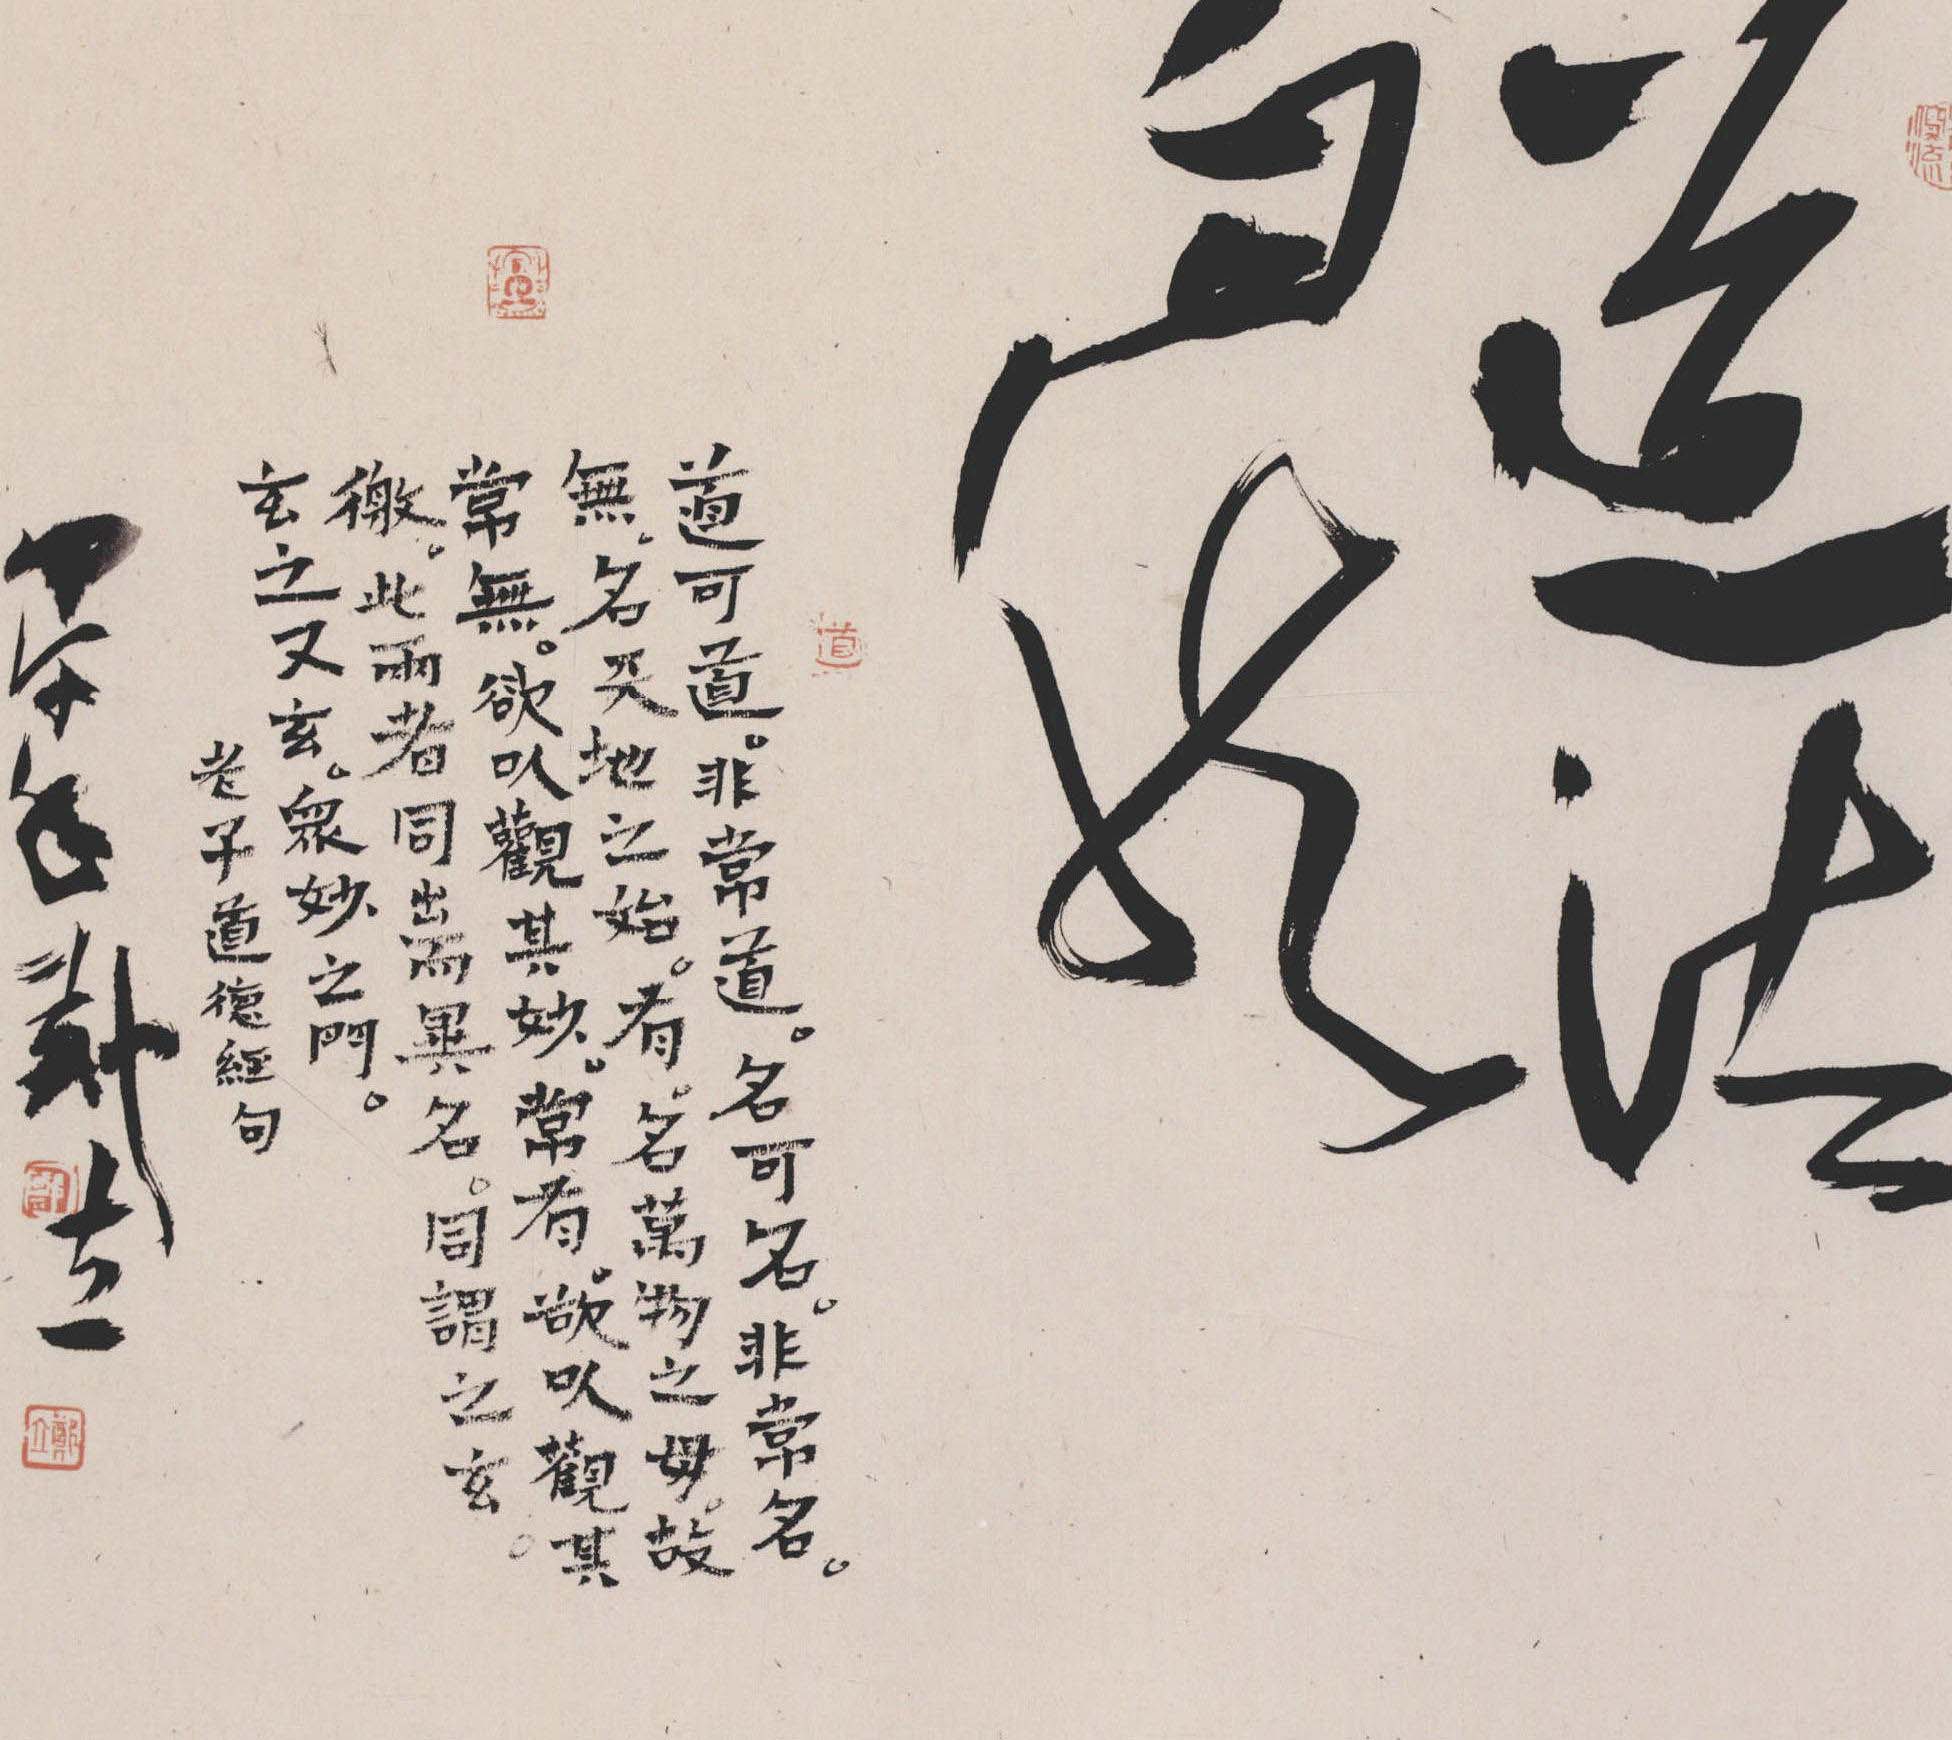 道法
自然
道
道可道。非常道。名可名。非常名。
無。名天地之始。有。名萬物之母。故
常無。欲以觀其妙。常有。欲以觀其
徼。此兩者同出而異名。同謂之玄。
玄之又玄。眾妙之門。
老子道德經句